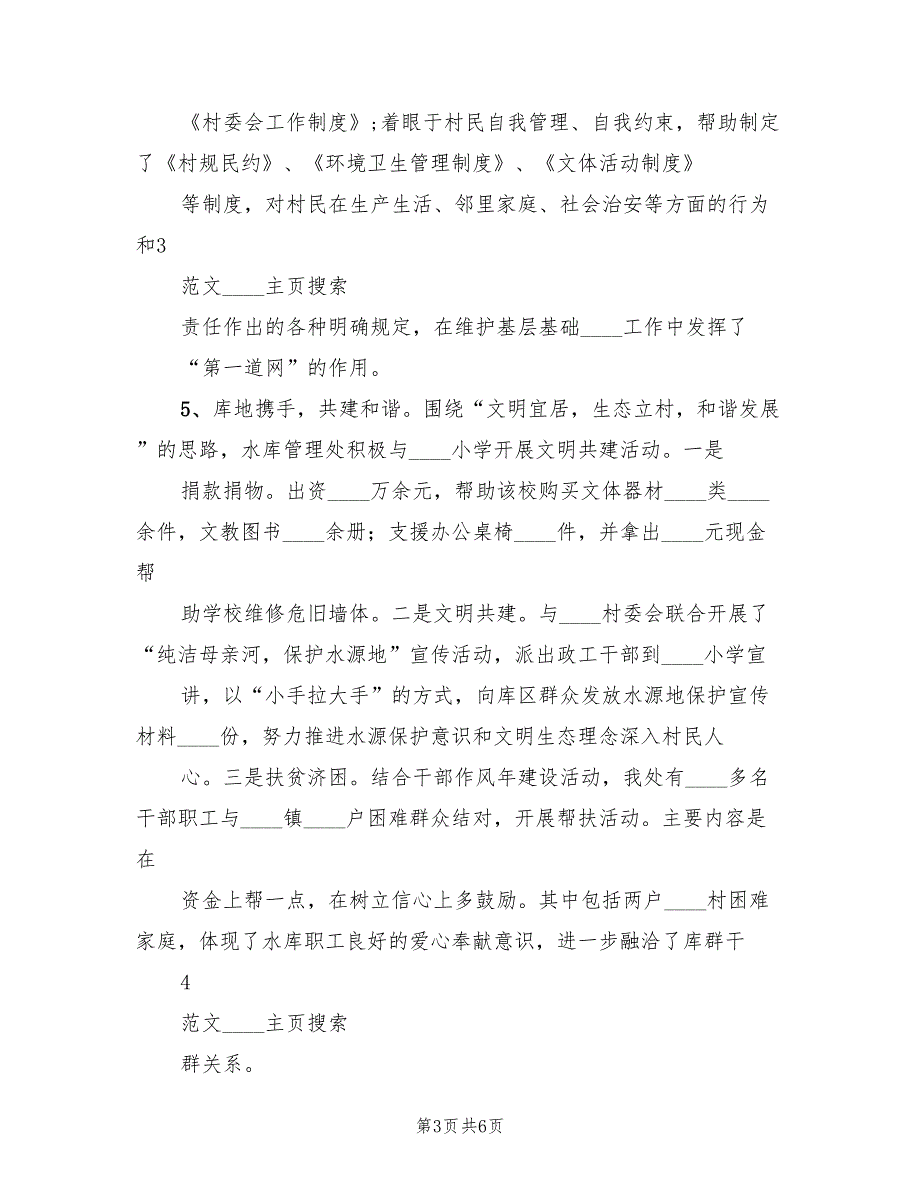 《村委会工作制度》;着眼于村民自我管理、自我约束，帮助制定
了《村规民约》、《环境卫生管理制度》、《文体活动制度》
等制度，对村民在生产生活、邻里家庭、社会治安等方面的行为
和3
范文____主页搜索
责任作出的各种明确规定，在维护基层基础____工作中发挥了
“第一道网”的作用。
5、库地携手，共建和谐。围绕“文明宜居，生态立村，和谐发展
”的思路，水库管理处积极与____小学开展文明共建活动。一是
捐款捐物。出资____万余元，帮助该校购买文体器材____类____
余件，文教图书____余册；支援办公桌椅____件，并拿出____元现金
帮
助学校维修危旧墙体。二是文明共建。与____村委会联合开展了
“纯洁母亲河，保护水源地”宣传活动，派出政工干部到____小学宣
讲，以“小手拉大手”的方式，向库区群众发放水源地保护宣传
材料____份，努力推进水源保护意识和文明生态理念深入村民人
心。三是扶贫济困。结合干部作风年建设活动，我处有____多名
干部职工与____镇____户困难群众结对，开展帮扶活动。主要内容是
在
资金上帮一点，在树立信心上多鼓励。其中包括两户____村困难
家庭，体现了水库职工良好的爱心奉献意识，进一步融洽了库群干
4
范文____主页搜索
群关系。
第3页共6页